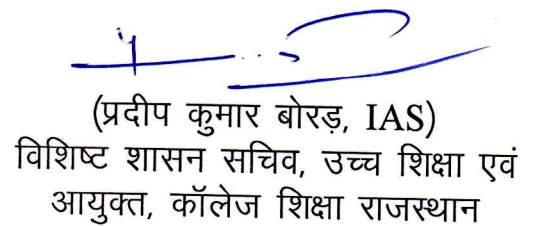 (प्रदीप कुमार बोरड़, IAS)
विशिष्ट शासन सचिव, उच्च शिक्षा एवं
आयुक्त, कॉलेज शिक्षा राजस्थान